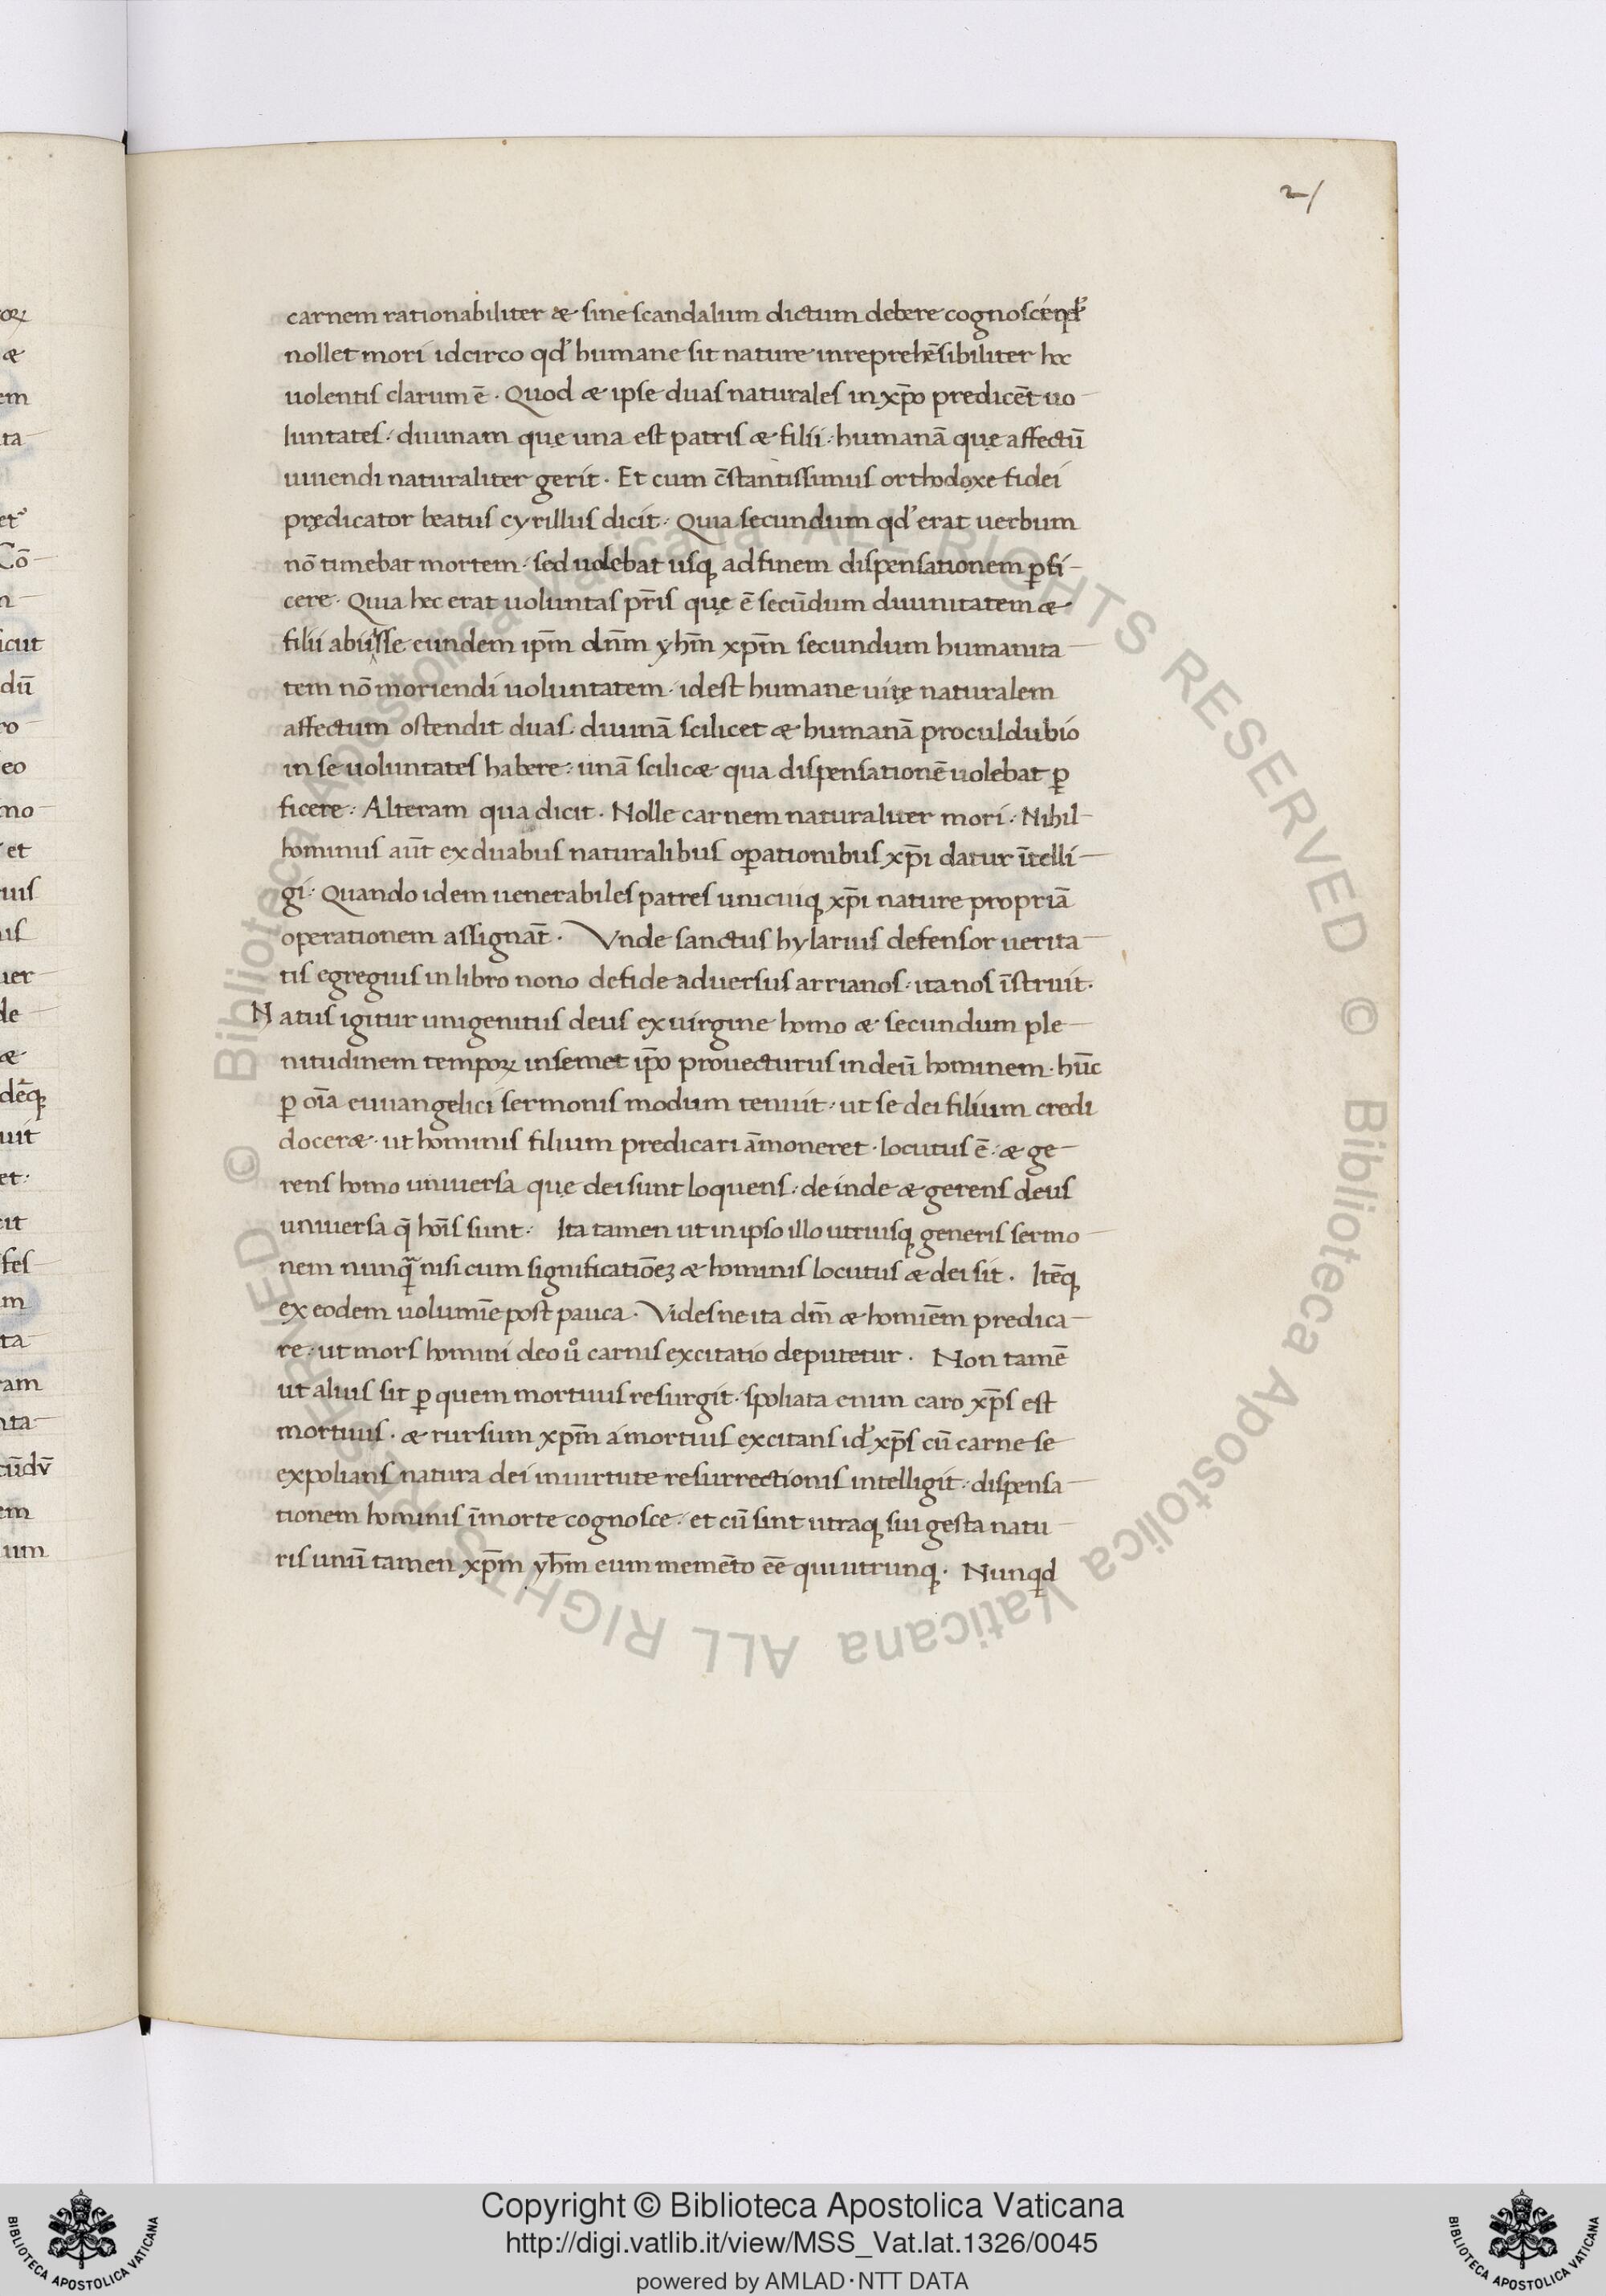 21
carnem rationabiliter & sine scandalum dictum debere cognosce᷑ qd᾽
nollet mori idcirco qd᾽ humane sit nature inreprehēsibiliter hoc
uolentis clarum ē · Quod & ipse duas naturales in xp̄o predicēt uo
luntates · diuinam quę una est patris & filii · humanā quę affectū
uiuendi naturaliter gerit · Et cum c̄stantissimus orthodoxe fidei
prędicator beatus cyrillus dicit · Quia secundum qd᾽ erat uerbum
nō timebat mortem · sed uolebat usq; ad finem dispensationem ꝑfi
cere · Quia hec erat uoluntas pr̄is quę ē secūdum diuinitatem &
filii abuisse eundem ip̄m dn̄m yhm̄ xpm̄ secundum humanita
tem nō moriendi uoluntatem · idest humane uitę naturalem
affectum ostendit duas · diuinā scilicet & humanā proculdubio
in se uoluntates habere · unā scilic& qua dispensationē uolebat ꝑ
ficere · Alteram qua dicit · Nolle carnem naturaliter mori · Nihil
hominus aūt ex duabus naturalibus oꝑationibus xp̄i datur ītelli
gi · Quando idem uenerabiles patres unicuiq; xp̄i nature propriā
operationem assignāt · Vnde sanctus hylarius defensor uerita
tis egregius in libro nono defide aduersus arrianos · ita nos īstruit ·
Natus igitur unigenitus deus ex uirgine homo & secundum ple
nitudinem temporꝝ insemet ip̄o prouecturus in deū hominem · hūc
ꝑ oīa euuangelici sermonis modum tenuit · ut se dei filium credi
docer& · ut hominis filium predicari āmoneret · locutus ē · & ge
rens homo uniuersa quę dei sunt loquens · deinde & gerens deus
uniuersa q̄ hoīs sunt · Ita tamen ut in ipso illo utriusq; generis sermo
nem nunqᷓ nisi cum significatiōeꝫ & hominis locutus & dei sit · Itēq;
ex eodem uolumīe post pauca · Videsne ita dm̄ & homīem predica
re · ut mors homini deo uͦ carnis excitatio deputetur · Non tamē
ut alius sit ꝑ quem mortuus resurgit · spoliata enim caro xp̄s est
mortuus · & rursum xpm̄ a mortuis excitans id᾽ xp̄s cū carne se
expolians natura dei inuirtute resurrectionis intelligit · dispensa
tionem hominis ī morte cognosce · et cū sint utraq; sui gesta natu
ris unū tamen xpm̄ yhm̄ eum memēto eē qui utrunq; · Nunqid
© Biblioteca Apostolica Vaticana ALL RIGHTS RESERVED © Biblioteca Apostolica Vaticana ALL RIGHTS RESERVED
BIBLIOTECA APOSTOLICA VATICANA
Copyright © Biblioteca Apostolica Vaticana
http://digi.vatlib.it/view/MSS_Vat.lat.1326/0045
powered by AMLAD·NTT DATA
BIBLIOTECA APOSTOLICA VATICANA